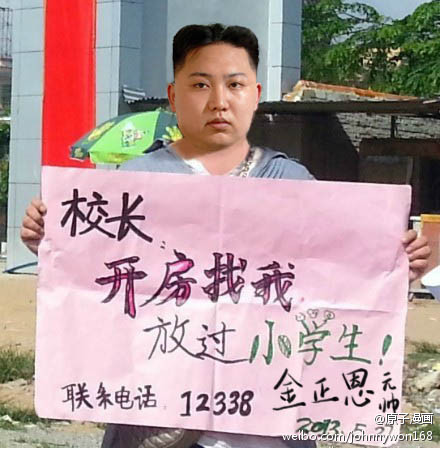 校长
开房找我
放过小学生!
联系电话:12338
金正恩元帅
2013.5.27
@原子漫画
weibo.com/johnnywon168